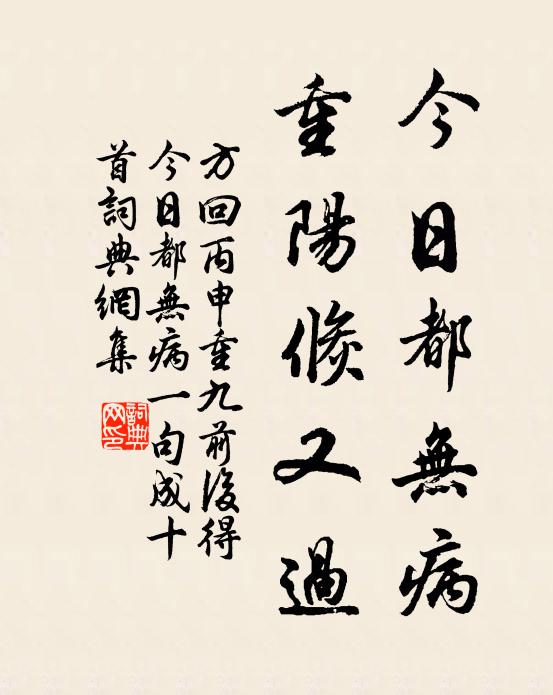 今日都無病
重陽倏又過
方回丙申重九前後得
今日都無病一句成十
首詞典網集
詞典
网印